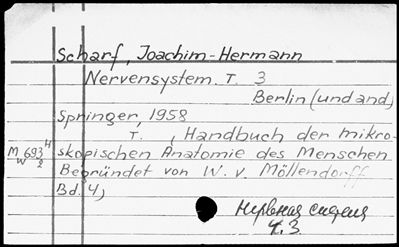 Scharf, Joachim-Hermann
Nervensystem. T. 3
Berlin (und and)
Springer, 1958
T. , Handbuch der mikro-
M 693 4
W 2
skopischen Anatomie des Menschen
Begründet von W. v. Möllendorff
Bd. 4)
Нервная система
Ч. 3